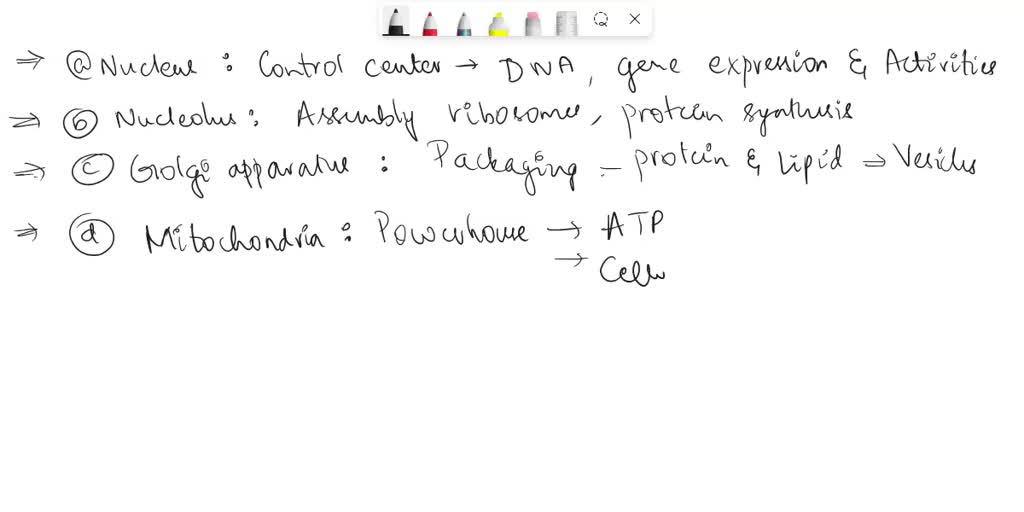 ⇒ ⓐ Nucleus : Control center → DNA, gene expression & Activities
⇒ ⓑ Nucleolus : Assembly ribosomes, protein synthesis
⇒ ⓒ Golgi apparatus : Packaging – protein & Lipid ⇒ Vesicles
⇒ ⓓ Mitochondria : Powerhouse → ATP
→ Cellu